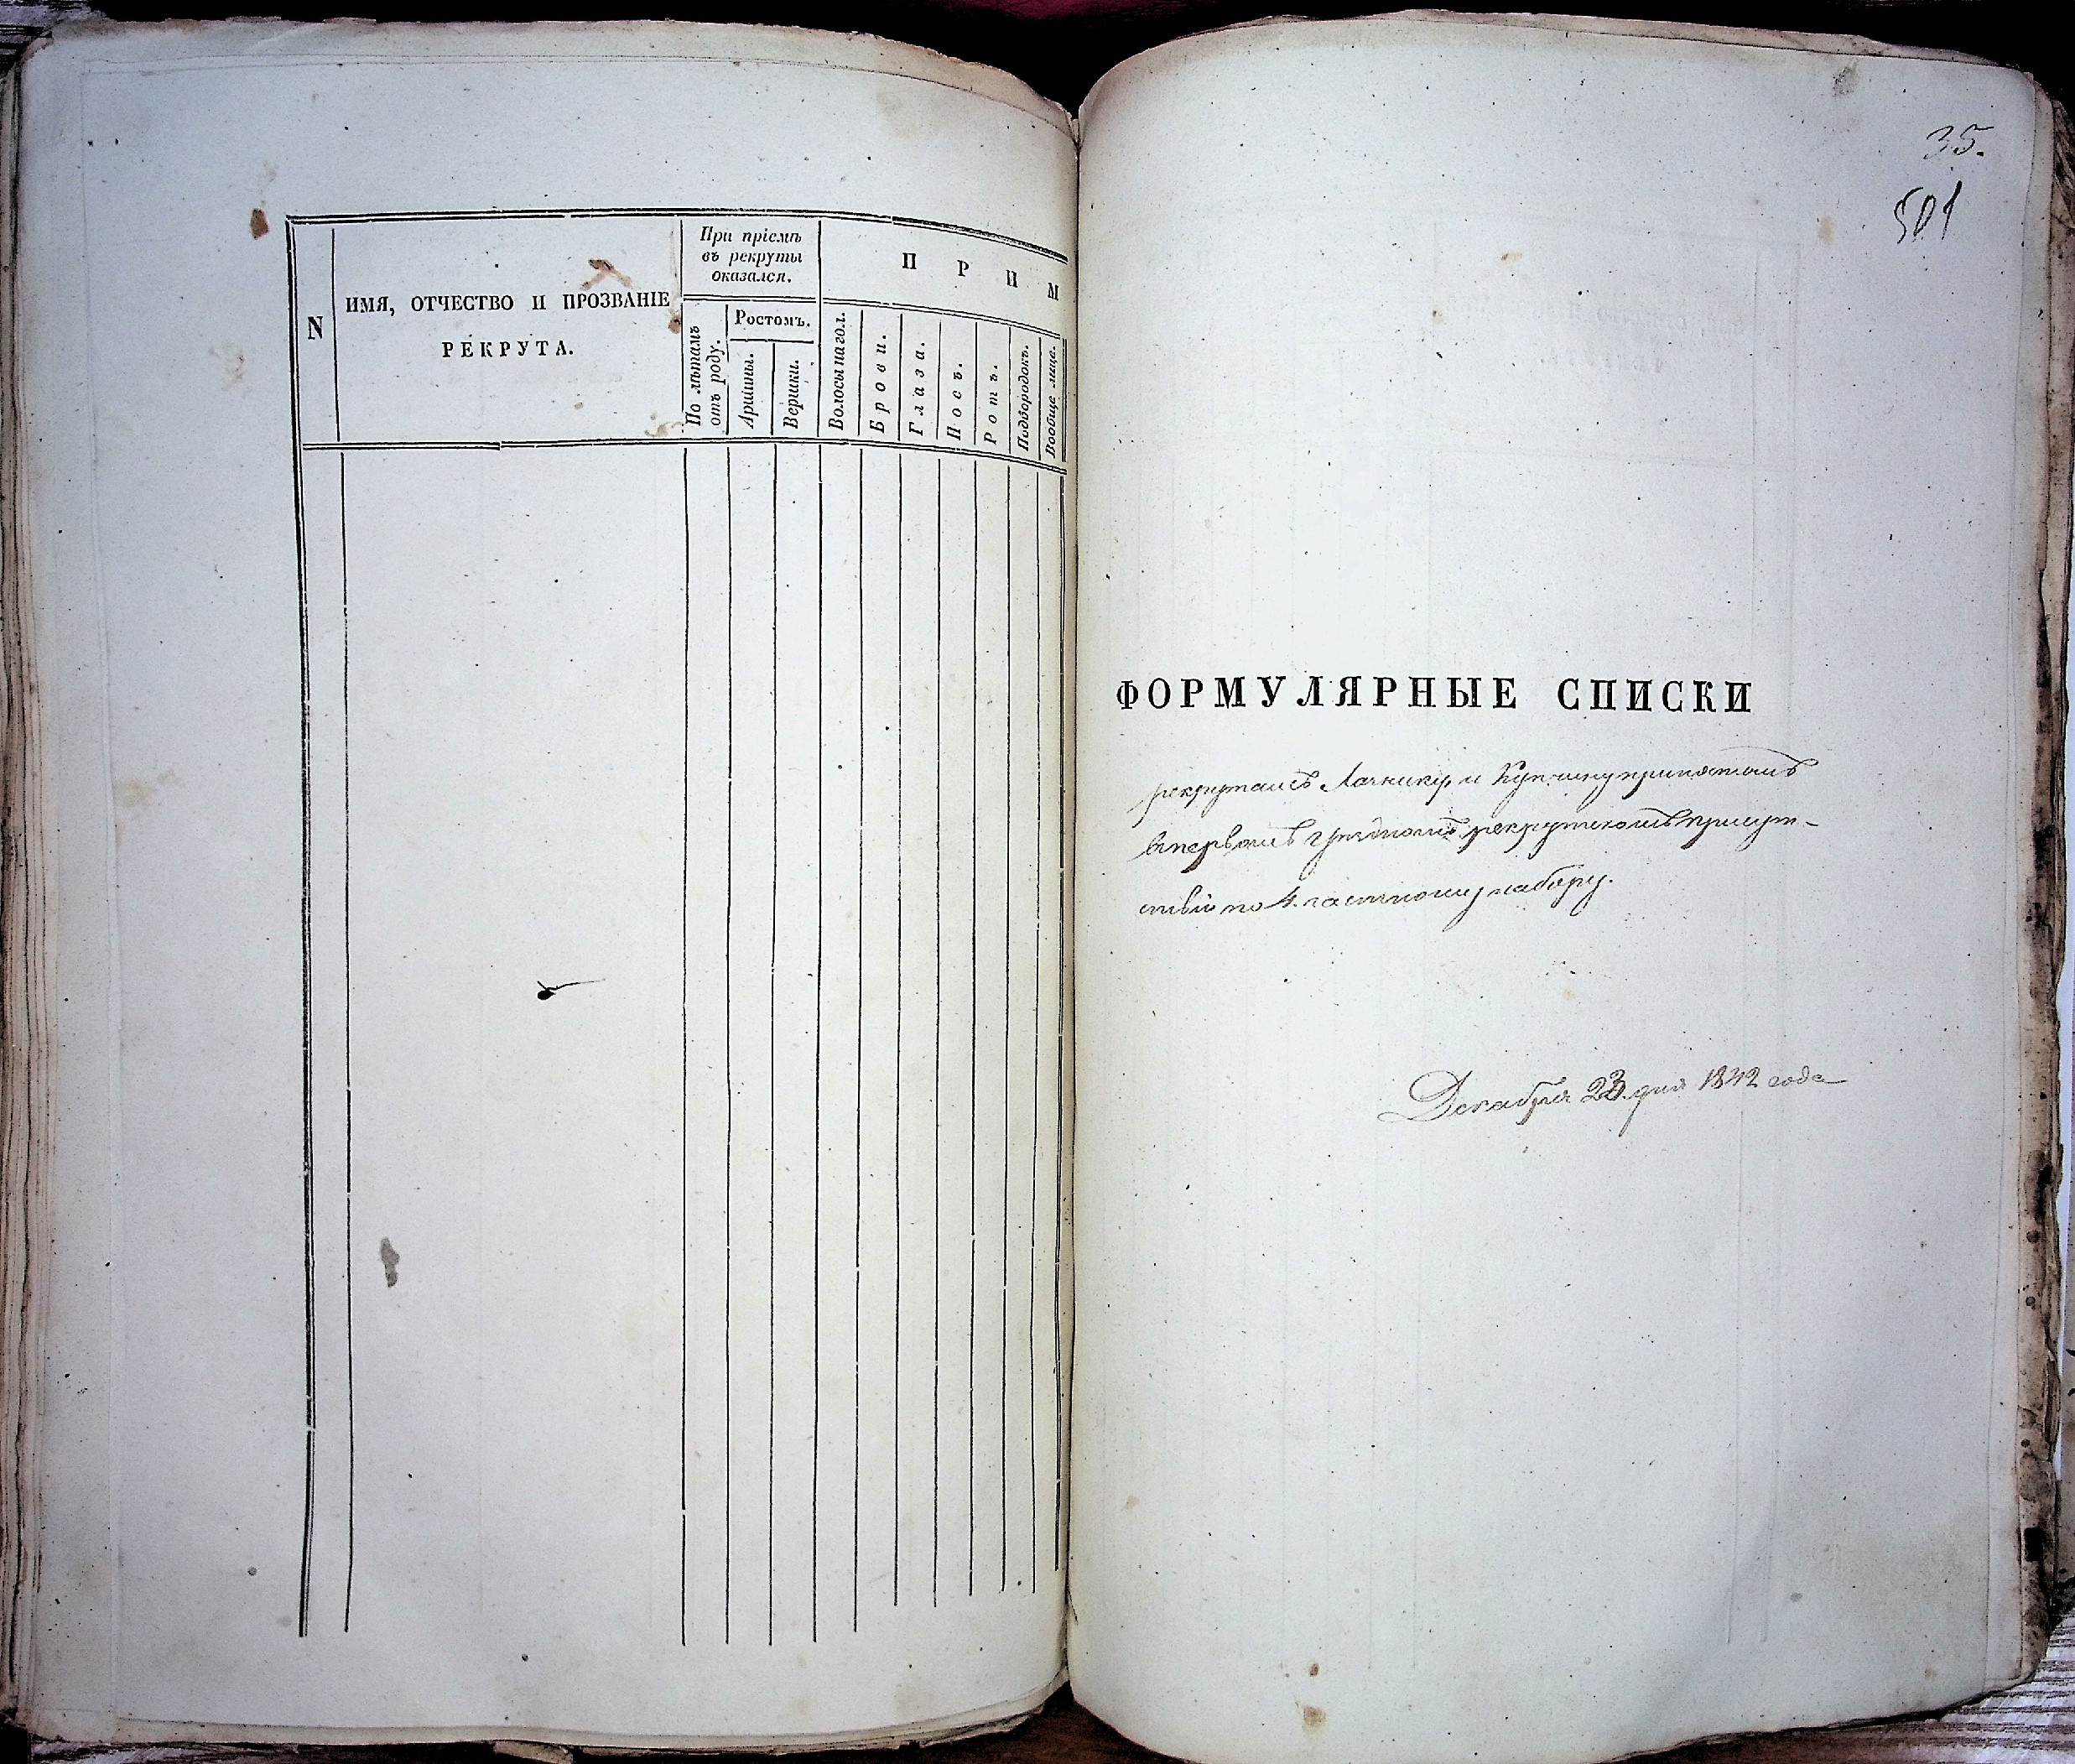 При пріемѣ
въ рекруты
оказался.
П Р И М
N
ИМЯ, ОТЧЕСТВО И ПРОЗВАНІЕ
РЕКРУТА.
По лѣтамъ
отъ роду.
Ростомъ.
Аршины.
Вершки.
Волосы на гол.
Брови.
Глаза.
Носъ.
Ротъ.
Подбородокъ.
Вообще лице.
35.
501
ФОРМУЛЯРНЫЕ СПИСКИ
рекрутамъ и принятымъ
въ первомъ рекрутскомъ присут-
ствіи по 4. частному набору.
Декабря 23 дня 1842 года